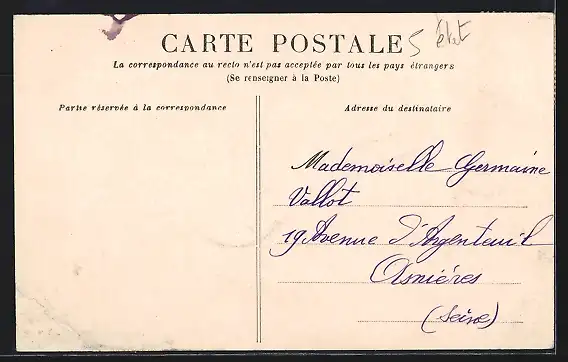 CARTE POSTALE 5 état
La correspondance au recto n'est pas acceptée par tous les pays étrangers
(Se renseigner à la Poste)
Partie réservée à la correspondance
Adresse du destinataire
Mademoiselle Germaine
Vallot
19 Avenue d'Argenteuil
Asniéres
(Seine)